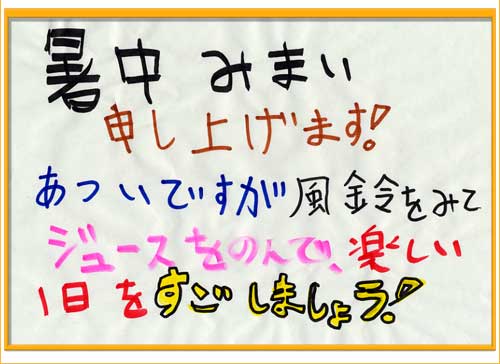 暑中 みまい
申し上げます!
あついですが風鈴をみて
ジュースをのんで、楽しい
1日をすごしましょう!